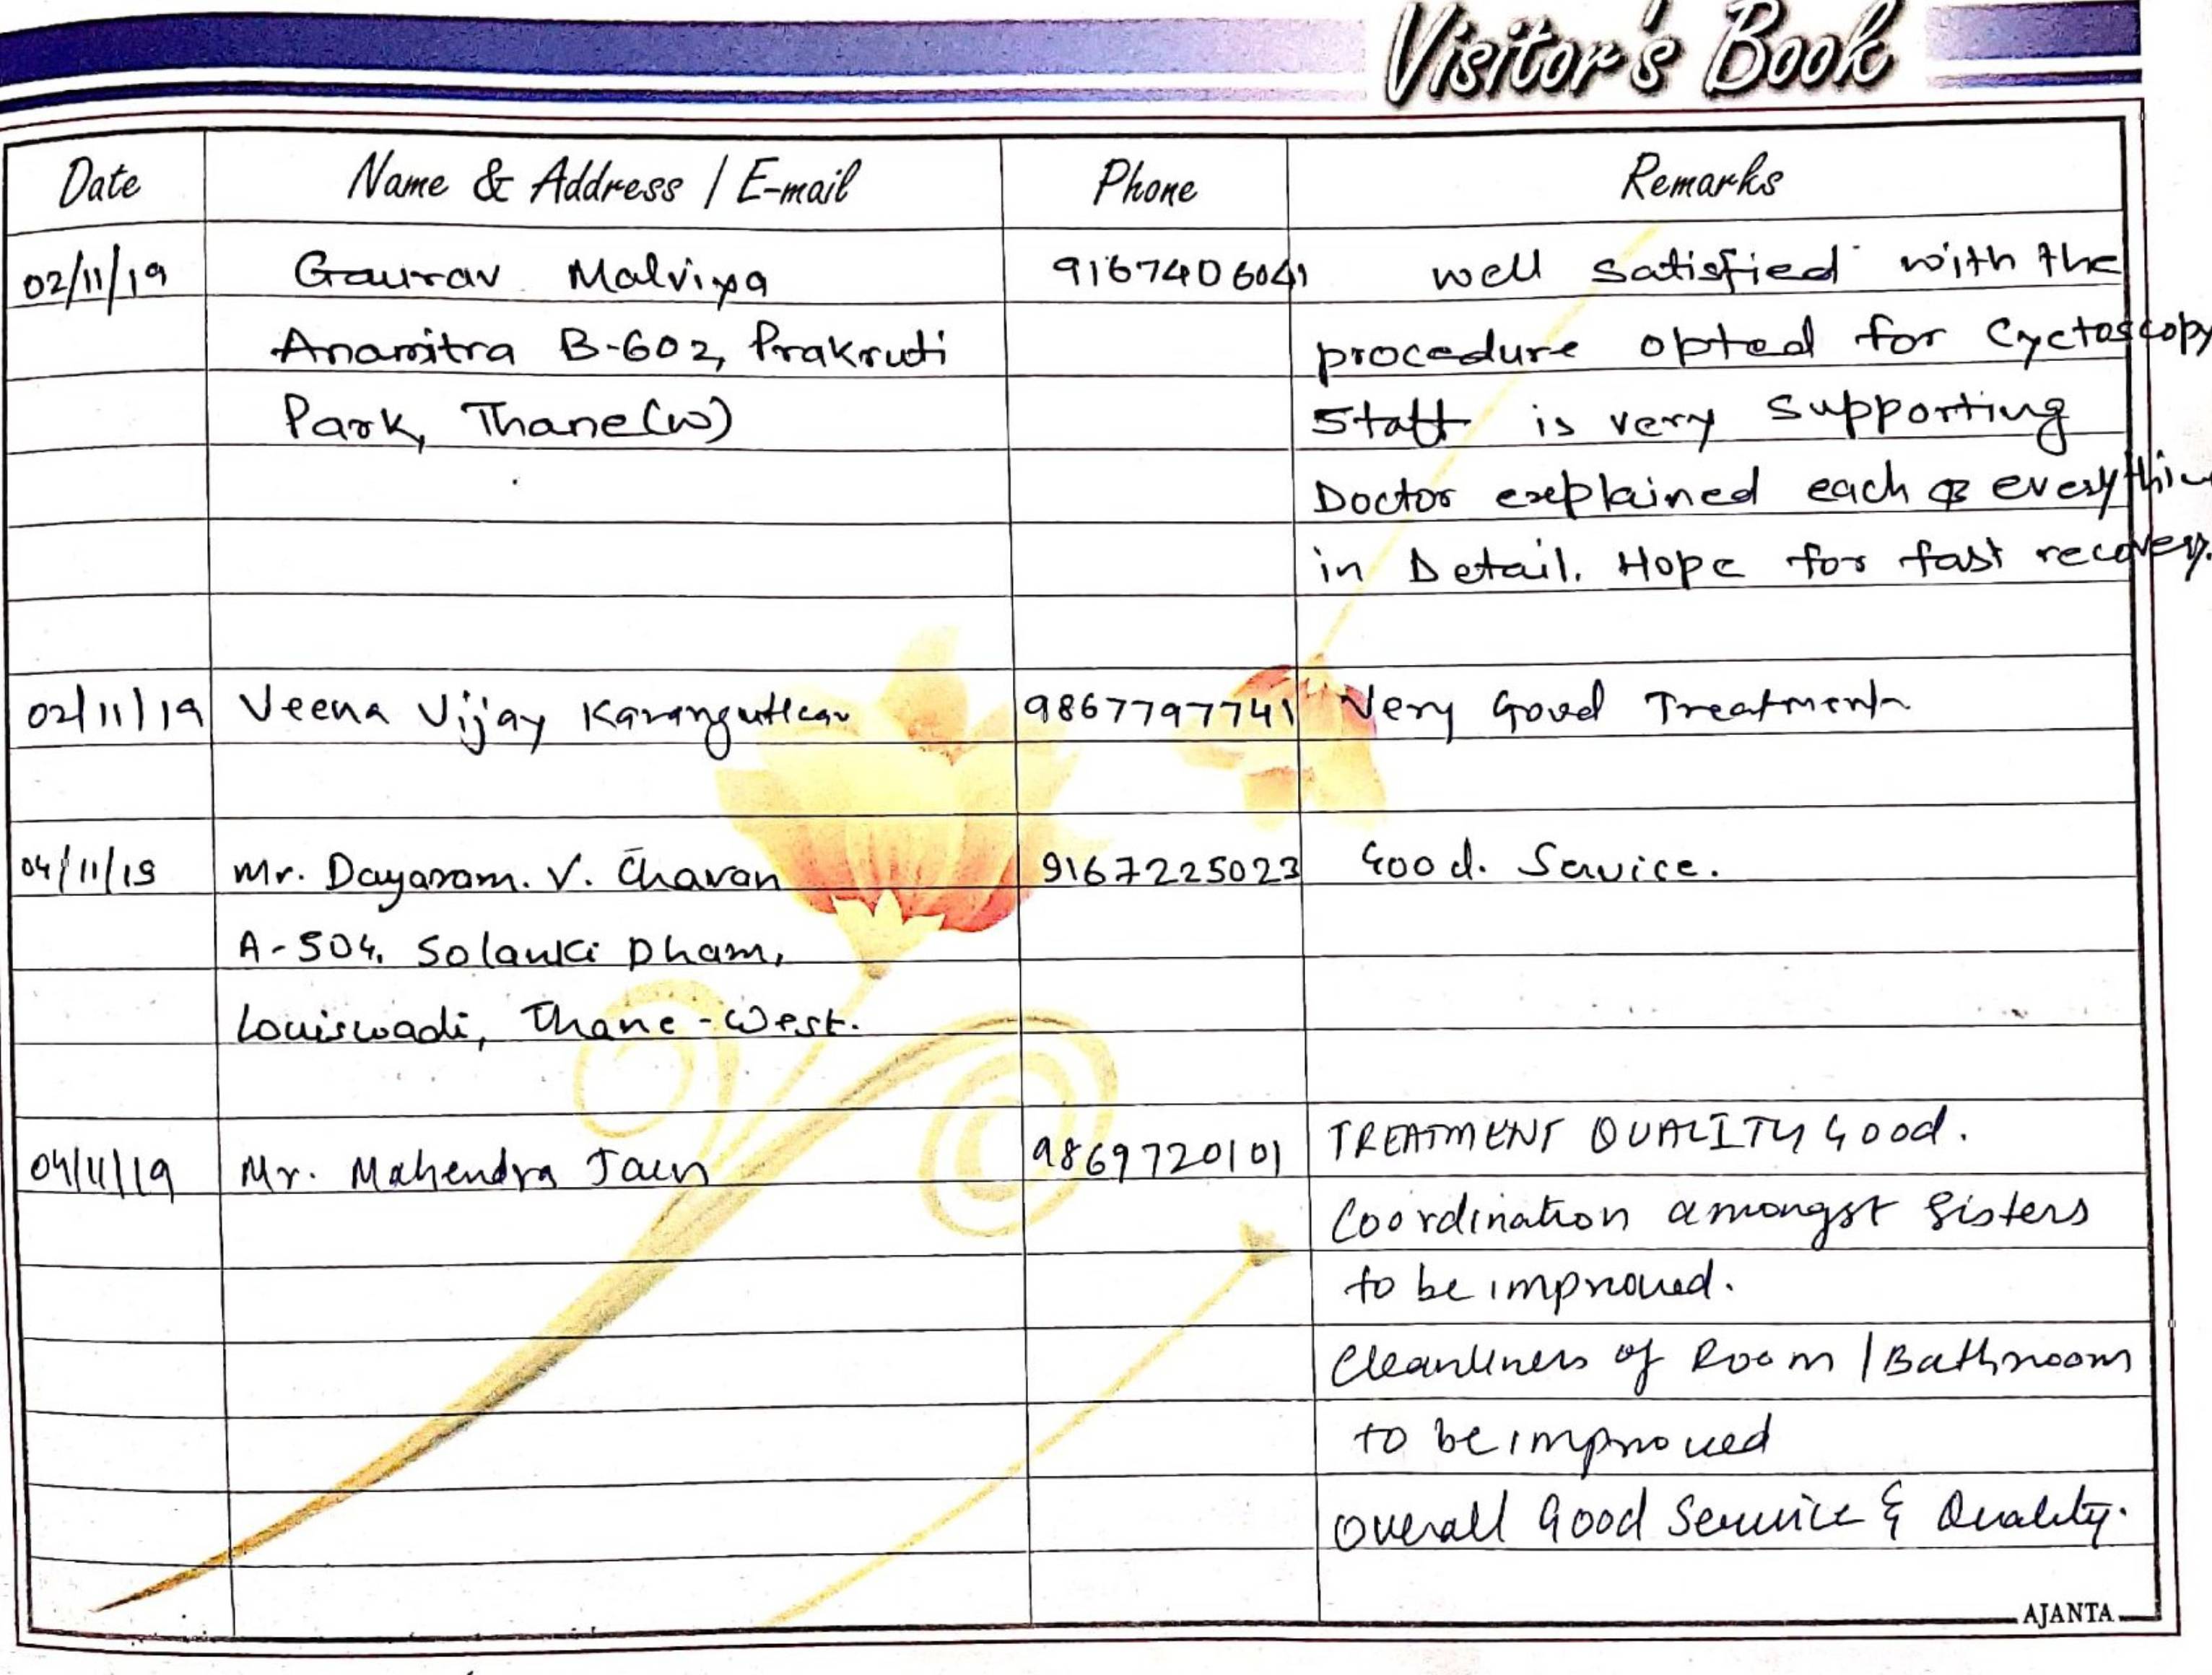 Visitor's Book
Date Name & Address / E-mail Phone Remarks
02/11/19 Gaurav Malviya 9167406041 well satisfied with the
Anamitra B-602, Prakruti procedure opted for Cyctoscopy
Park, Thane(W) Staff is very supporting
Doctor explained each & everythin
in Detail. Hope for fast recovery.
02/11/19 Veena Vijay Karangutkar 9867797741 Very Good Treatment
04/11/19 Mr. Dayaram. V. Chavan 9167225023 Good. Service.
A-504. Solanki Dham,
Louiswadi, Thane-West.
TREATMENT QUALITY Good.
04/11/19 Mr. Mahendra Jain 9869720101
Coordination amongst Sisters
to be improved.
Cleanliness of Room / Bathroom
to be improved
Overall Good Service & Quality.
AJANTA